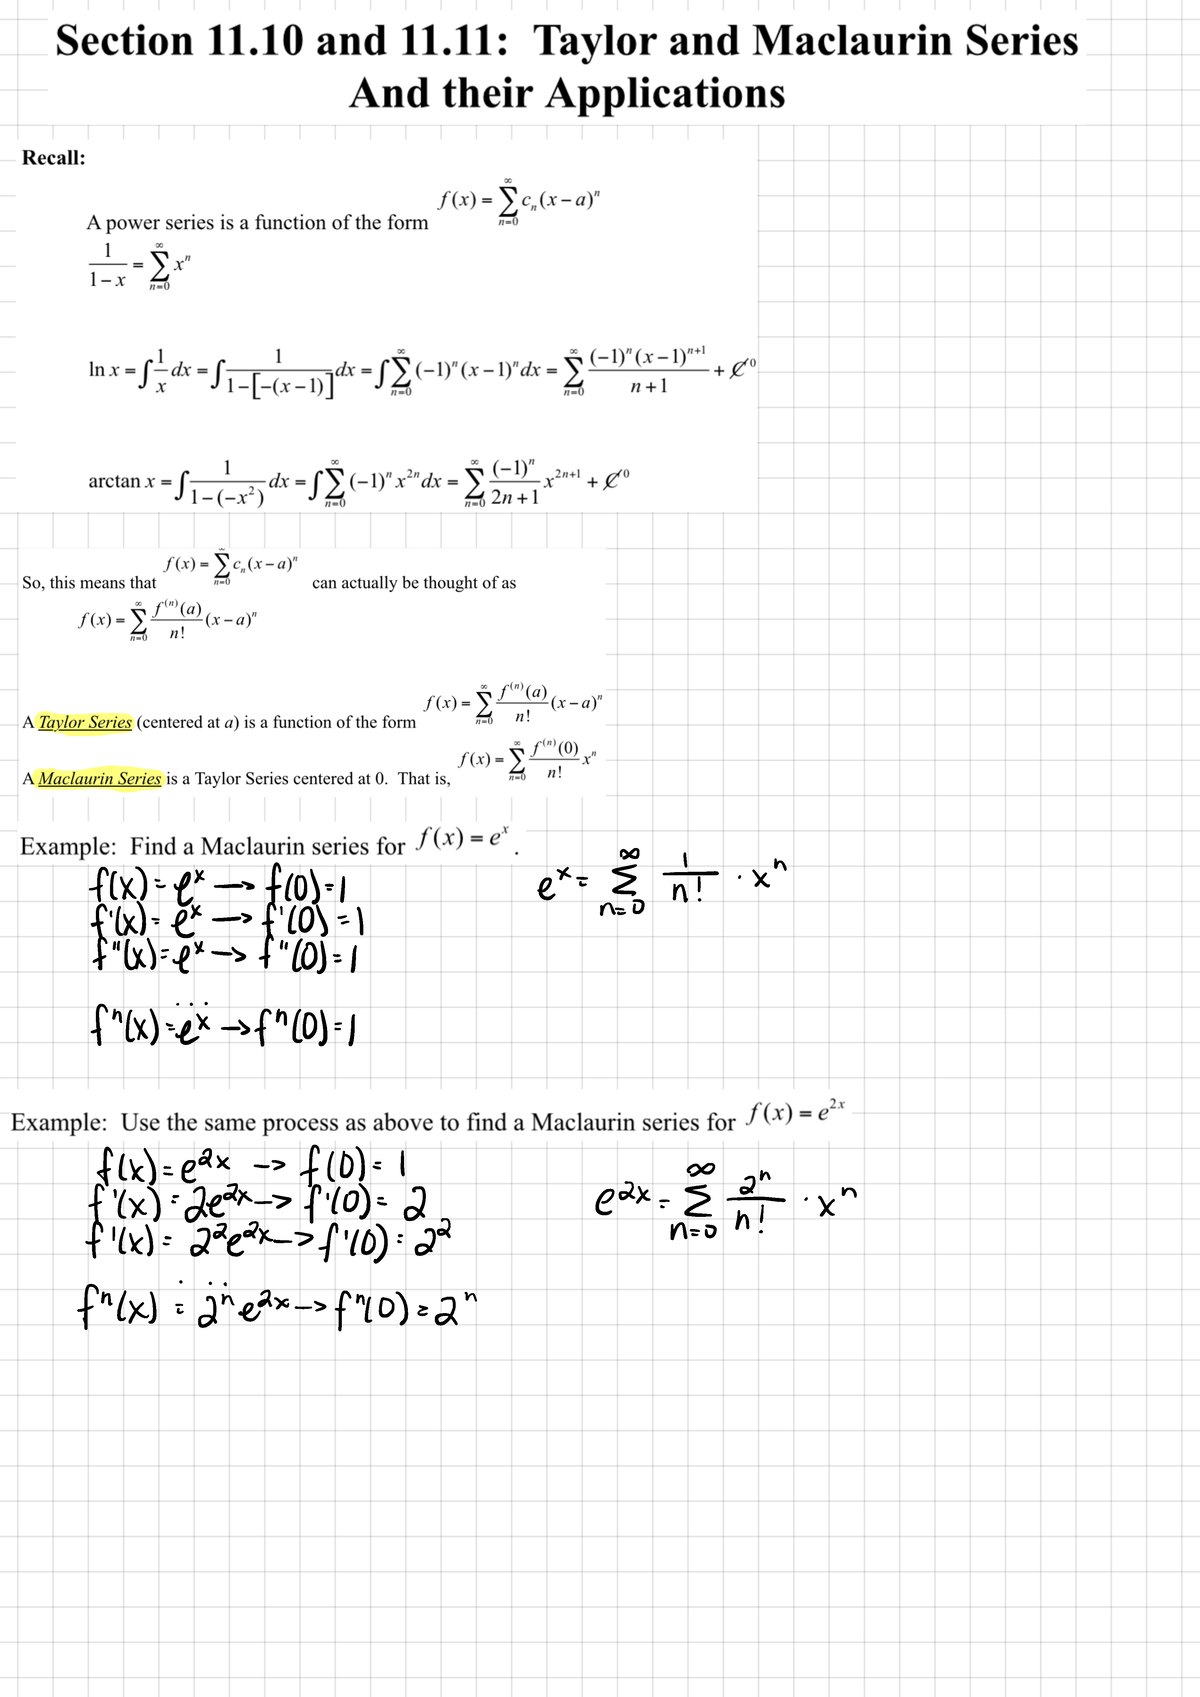 Section 11.10 and 11.11:  Taylor and Maclaurin Series
And their Applications
Recall:
A power series is a function of the form f(x) = ∑_{n=0}^{∞} c_n(x−a)^n
1/(1−x) = ∑_{n=0}^{∞} x^n
ln x = ∫ 1/x dx = ∫ 1/(1−[−(x−1)]) dx = ∫ ∑_{n=0}^{∞} (−1)^n (x−1)^n dx = ∑_{n=0}^{∞} (−1)^n (x−1)^{n+1}/(n+1) + C̸^0
arctan x = ∫ 1/(1−(−x²)) dx = ∫ ∑_{n=0}^{∞} (−1)^n x^{2n} dx = ∑_{n=0}^{∞} (−1)^n/(2n+1) x^{2n+1} + C̸^0
So, this means that f(x) = ∑_{n=0}^{∞} c_n(x−a)^n can actually be thought of as
f(x) = ∑_{n=0}^{∞} f^{(n)}(a)/n! (x−a)^n
A Taylor Series (centered at a) is a function of the form f(x) = ∑_{n=0}^{∞} f^{(n)}(a)/n! (x−a)^n
A Maclaurin Series is a Taylor Series centered at 0.  That is, f(x) = ∑_{n=0}^{∞} f^{(n)}(0)/n! x^n
Example:  Find a Maclaurin series for f(x) = e^x.
f(x) = e^x → f(0) = 1
f'(x) = e^x → f'(0) = 1
f"(x) = e^x → f"(0) = 1
...
f^n(x) = e^x → f^n(0) = 1
e^x = ∑_{n=0}^{∞} 1/n! · x^n
Example:  Use the same process as above to find a Maclaurin series for f(x) = e^{2x}
f(x) = e^{2x} → f(0) = 1
f'(x) = 2e^{2x} → f'(0) = 2
f'(x) = 2²e^{2x} → f'(0) = 2²
...
f^n(x) = 2^n e^{2x} → f^n(0) = 2^n
e^{2x} = ∑_{n=0}^{∞} 2^n/n! · x^n